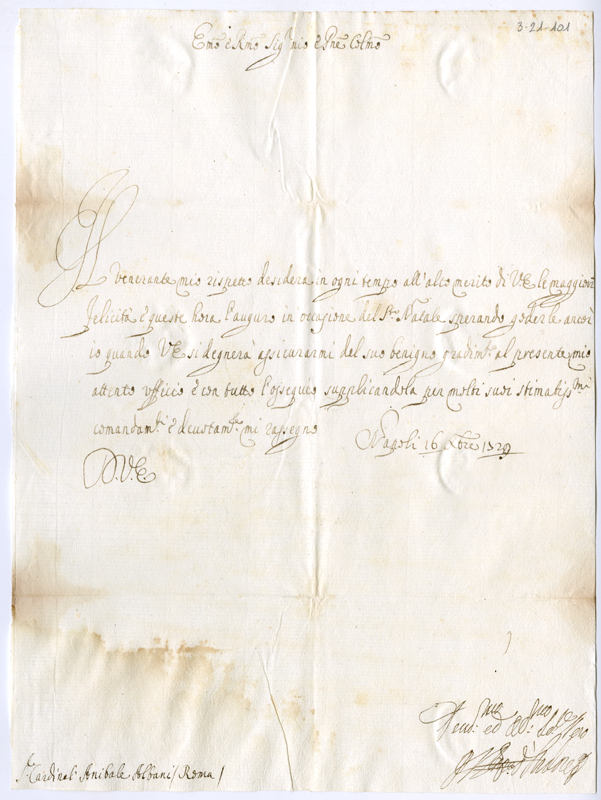 3-21-101
Emo è Rmo Sigr mio è Pne Colmo
Il venerante mio rispetto desidera in ogni tempo all'alto merito di VE le maggiori
felicità è queste hora l'auguro in occasione del Sto Natale sperando goderle ancor'
io quando VE si degnerà assicurarmi del suo benigno gradimto al presente mio
attento ufficio è con tutto l'ossequio supplicandola per molti suoi stimatissmi
comandamti è deuotamte mi rassegno
Napoli 16 Xbre 1729
D.V.E.
ed
Sr Cardinal Anibale Albani / Roma /